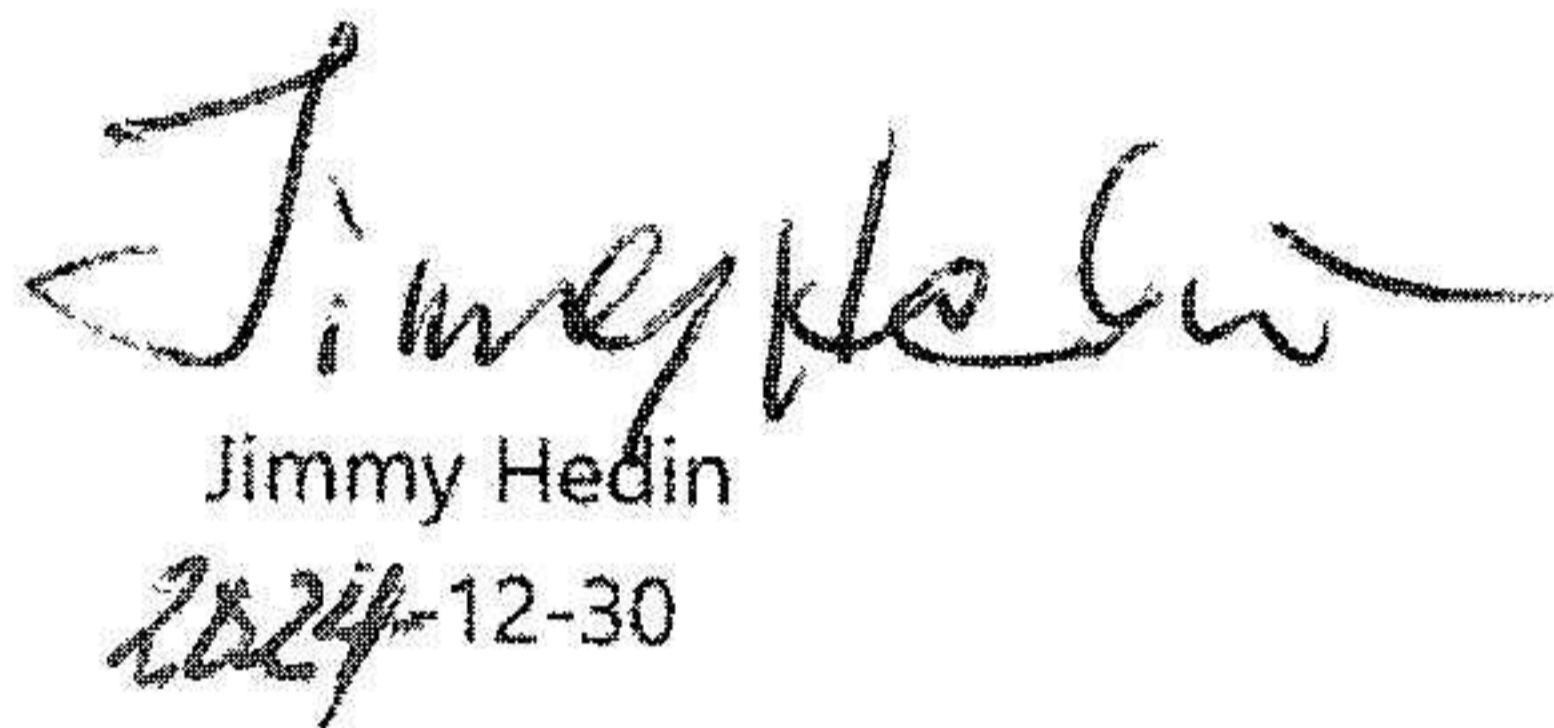 Jimmy Hedin
Jimmy Hedin
2024-12-30